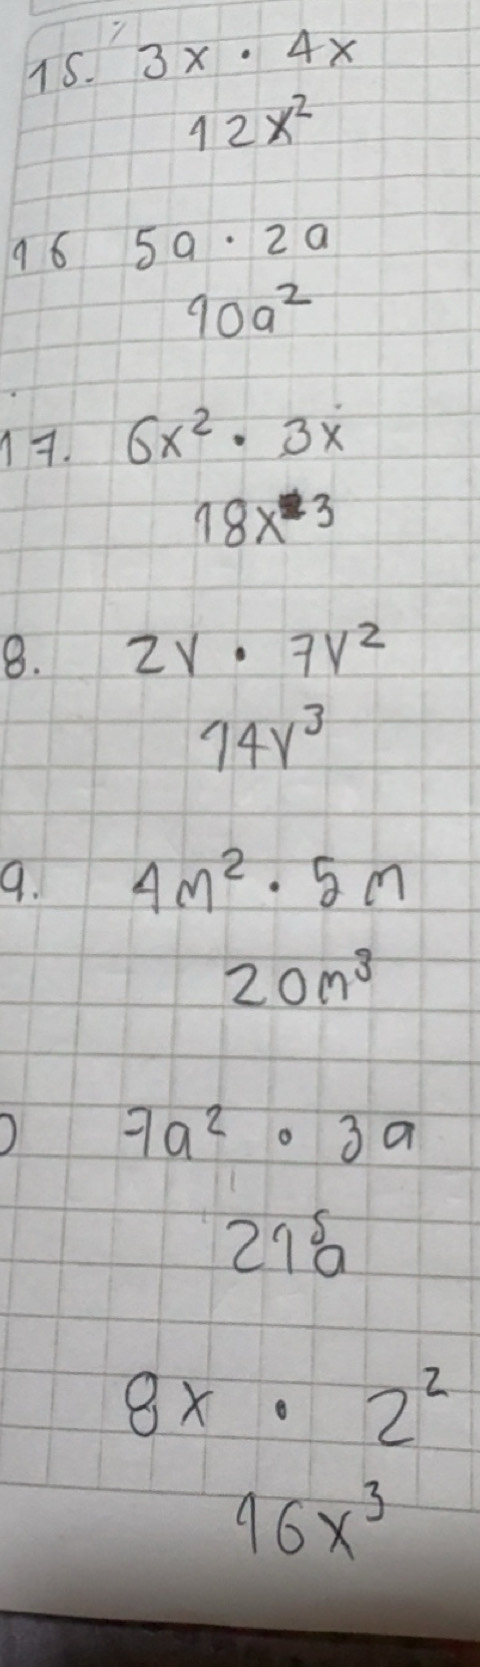 15. 3x · 4x
12x²
16 5a · 2a
10a²
17. 6x² · 3x
18x³
8. 2y · 7y²
14y³
9. 4m² · 5m
20m³
0 7a² · 3a
8x · 2²
16x³